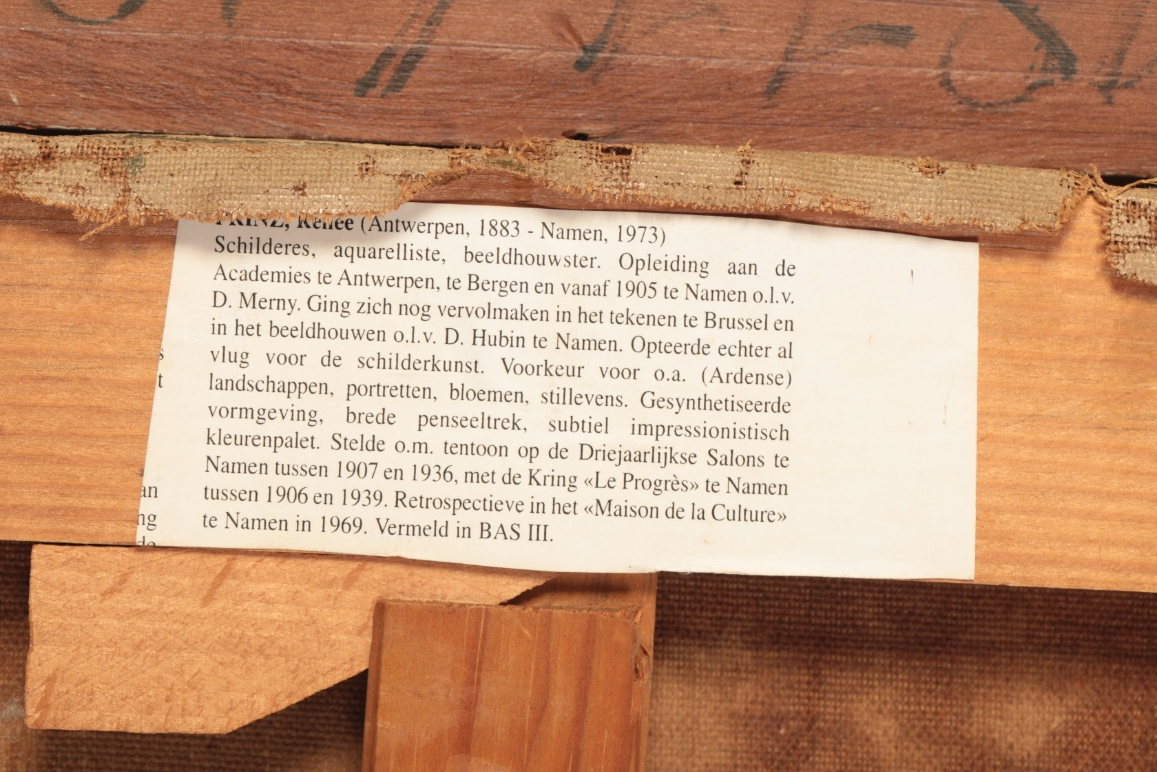 PRINZ, Renée (Antwerpen, 1883 - Namen, 1973)
Schilderes, aquarelliste, beeldhouwster. Opleiding aan de
Academies te Antwerpen, te Bergen en vanaf 1905 te Namen o.l.v.
D. Merny. Ging zich nog vervolmaken in het tekenen te Brussel en
in het beeldhouwen o.l.v. D. Hubin te Namen. Opteerde echter al
vlug voor de schilderkunst. Voorkeur voor o.a. (Ardense)
landschappen, portretten, bloemen, stillevens. Gesynthetiseerde
vormgeving, brede penseeltrek, subtiel impressionistisch
kleurenpalet. Stelde o.m. tentoon op de Driejaarlijkse Salons te
Namen tussen 1907 en 1936, met de Kring «Le Progrès» te Namen
tussen 1906 en 1939. Retrospectieve in het «Maison de la Culture»
te Namen in 1969. Vermeld in BAS III.